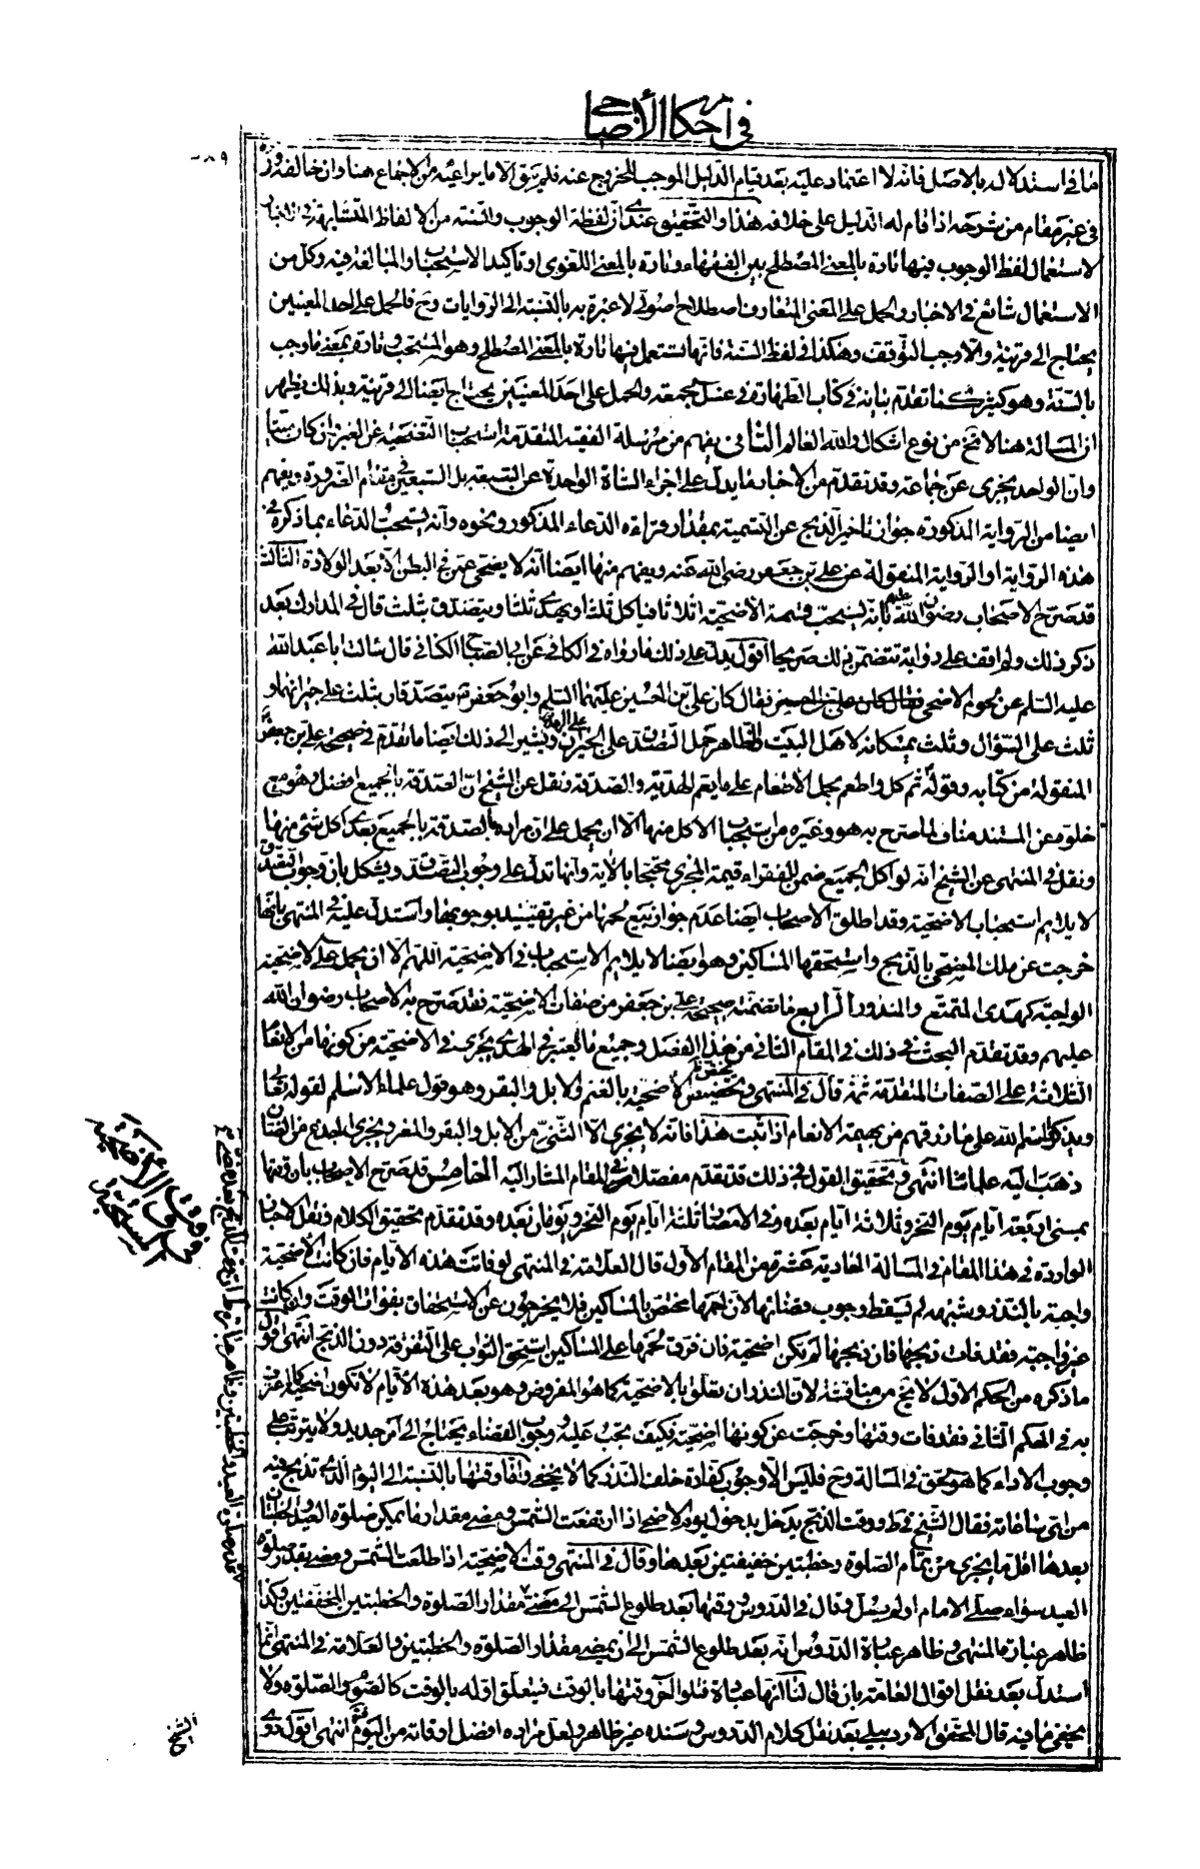 في احكام الأضاحي
ما في استدلاله بالاصل فانه لا اعتماد عليه بعد قيام الدليل الموجب للخروج عنه فلم يبق الا ما يراعيه من الاجماع هنا وان خالفه
في غير مقام من شرحه اذا قام له الدليل على خلافه هذا والتحقيق عندي ان لفظة الوجوب والسنة من الالفاظ المتشابهة في
لاستعمال لفظ الوجوب فيها تارة بالمعنى المصطلح بين الفقهاء وتارة بالمعنى اللغوي او تأكيد الاستحباب والمبالغة فيه وكل من
الاستعمال شائع في الاخبار والحمل على المعنى المتعارف اصطلاح اصولي لا عبرة به بالنسبة الى الروايات وح فالحمل على احد المعنيين
يحتاج الى قرينة والا وجب التوقف وهكذا في لفظ السنة فانها تستعمل فيها تارة بالمعنى المصطلح وهو المستحب وتارة بمعنى ما وجب
بالسنة وهو كثير كما تقدم بيانه في كتاب الطهارة في غسل الجمعة والحمل على احد المعنيين يحتاج ايضا الى قرينة وبذلك يظهر
ان المسالة هنا لا تخ من نوع اشكال والله العالم الثاني يفهم من مرسلة الفقيه المتقدمة استحباب التضحية عن الغير وان كان ميتا
وان الواحد يجزى عن جماعة وقد تقدم من الاخبار ما يدل على اجزاء الشاة الواحدة عن السبعة بل السبعين في مقام الضرورة ويفهم
ايضا من الرواية المذكورة جواز تاخير الذبح عن التسمية بمقدار قراءة الدعاء المذكور ونحوه وانه يستحب الدعاء بما ذكره في
هذه الرواية او الرواية المنقولة عن علي بن جعفر رضي الله عنه ويفهم منها ايضا انه لا يضحى عمن في البطن الا بعد الولادة الثالث
قد صرح الاصحاب رضوان الله عليهم بانه يستحب قسمة الاضحية اثلاثا فياكل ثلثا ويهدي ثلثا ويتصدق بثلث قال في المدارك بعد
ذكر ذلك ولم اقف على رواية تتضمن ذلك صريحا اقول يدل على ذلك ما رواه في الكافي عن ابي الصباح الكناني قال سالت ابا عبد الله
عليه السلم عن لحوم الاضحى فقال كان علي بن الحسين فقال كان علي بن الحسين عليهما السلم وابو جعفر يتصدقان بثلث على جيرانهما و
ثلث على السؤال وثلث يمسكانه لاهل البيت والظاهر حمل التصدق على الجيران على الهدية ويشير الى ذلك ايضا ما تقدم في صحيحة علي بن جعفر
المنقولة من كتابه وقوله ثم كل واطعم بحمل الاطعام على ما يعم الهدية والصدقة ونقل عن الشيخ ان الصدقة بالجميع افضل وهو مع
خلوه عن المستند مناف لما صرح به هو وغيره من استحباب الاكل منها الا ان يحمل على ان مراده بالصدقة بالجميع بعد اكل شئ منها
ونقل في المنتهى عن الشيخ انه لو اكل الجميع ضمن للفقراء قيمة المجزي محتجا بالاية وانها تدل على وجوب التصدق ويشكل بان وجوب التصدق
لا يلايم استحباب الاضحية وقد اطلق الاصحاب ايضا عدم جواز بيع لحمها من غير تقييد بوجوبها واستدل عليه في المنتهى بانها
خرجت عن ملك المضحي بالذبح واستحقها المساكين وهو ايضا لا يلايم الاستحباب في الاضحية اللهم الا ان يحمل على الاضحية
الواجبة كهدى المتمتع والمنذور الرابع ما تضمنته صحيحة علي بن جعفر من صفات الاضحية فقد صرح به الاصحاب رضوان الله
عليهم وقد تقدم البحث في ذلك في المقام الثاني من هذا الفصل وجميع ما اعتبر في الهدي يجزى في الاضحية من كونها من الانعام
الثلاثة على الصفات المتقدمة ثمة قال في المنتهى وتختص الاضحية بالغنم والابل والبقر وهو قول علماء الاسلم لقوله تعالى
ويذكروا اسم الله على ما رزقهم من بهيمة الانعام اذا ثبت هذا فانه لا يجزى الا الثني من الابل والبقر والمعز ويجزى الجذع من الضان
ذهب اليه علمائنا انتهى وتحقيق القول في ذلك قد تقدم مفصلا في المقام المشار اليه الخامس قد صرح الاصحاب بان وقتها
بمنى اربعة ايام يوم النحر وثلاثة ايام بعده وفي الامصار ثلثة ايام يوم النحر ويومان بعده وقد تقدم تحقيق الكلام ونقل الاخبار
الواردة في هذا المقام في المسالة الحادية عشرة من المقام الاول قال العلامة في المنتهى لو فاتت هذه الايام فان كانت الاضحية
واجبة بالنذر وشبهه لم يسقط وجوب قضائها لان لحمها مختص بالمساكين فلا يخرجون عن الاستحقاق بفوات الوقت وان كانت
غير واجبة فقد فات ذبحها فان ذبحها لم تكن اضحية فان فرق لحمها على المساكين استحق الثواب على التفرقة دون الذبح انتهى اقول
ما ذكره من الحكم الاول لا يخ من مناقشة لان النذر ان تعلق بالاضحية كما هو المفروض وهو بعد هذه الايام لا تكون اضحية كما اعترف
به في الحكم الثاني فقد فات وقتها وخرجت عن كونها اضحية فكيف يجب عليه ووجوب القضاء يحتاج الى امر جديد ولا يترتب على
وجوب الاداء كما هو محقق في المسالة وح فليس الا وجوب كفارة خلف النذر كما لا يخفى واما وقتها بالنسبة الى اليوم الذي تذبح فيه
فقال الشيخ في ط ووقت الذبح يدخل بدخول يوم الاضحى اذا ارتفعت الشمس ومضى مقدار ما يمكن صلوة العيد والخطبتان
بعدها اقل ما يجزى من تمام الصلوة وخطبتين خفيفتين بعدها وقال في المنتهى وقت الاضحية اذا طلعت الشمس ومضى بقدر صلوة
العيد سواء صلى الامام او لم يصل وقال في الدروس ووقتها بعد طلوع الشمس الى مضي مقدار الصلوة والخطبتين المخففتين وكذا
ظاهر عبارة المنتهى وظاهر عبارة الدروس انه بعد طلوع الشمس الى ان يمضي مقدار الصلوة والخطبتين والعلامة في المنتهى انما
استدل بعد نقل اقوال العامة بان قال لنا انها عبادة وقتها بالوقت فيتعلق اوله بالوقت كالصوم والصلوة ولا
يخفى ما فيه قال المحقق الاردبيلي بعد نقل كلام الدروس وسنده غير ظاهر ولعل مراده افضل اوقاته من اليوم انتهى اقول
في وقت الأضحية
الشيخ